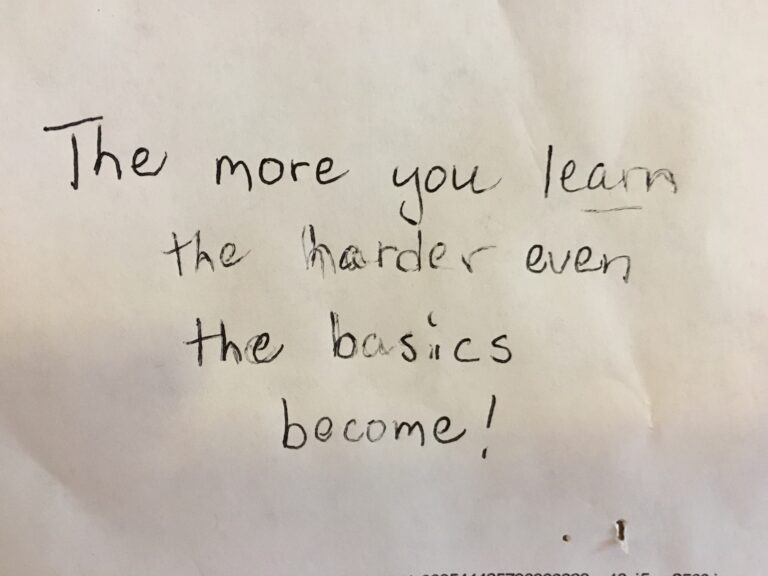 The more you learn
the harder even
the basics
become!